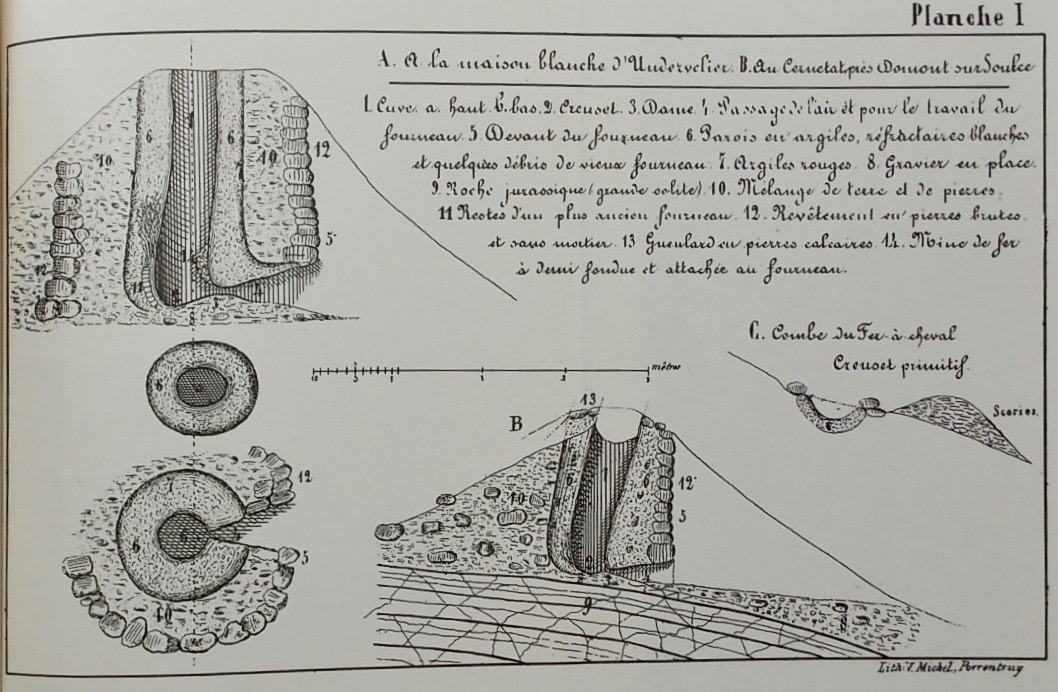 Planche I
A. A la maison blanche d'Undervelier. B. Au Cernetat, près Domont sur Soulce
1. Cuve. a. haut. b. bas. 2. Creuset. 3. Dame. 4. Passage de l'air et pour le travail du
fourneau. 5. Devant du fourneau. 6. Parois en argiles, réfractaires blanches
et quelques débris de vieux fourneau. 7. Argiles rouges. 8. Gravier en place.
9. Roche jurassique (grande oolite). 10. Mélange de terre et de pierres.
11 Restes d'un plus ancien fourneau. 12. Revêtement en pierres brutes
et sans mortier. 13 Gueulard en pierres calcaires. 14. Mine de fer
à demi fondue et attachée au fourneau.
6 6
10 10 12
5
12 11 14
6
mètres
1 2 3
C. Combe du Fer-à-cheval
Creuset primitif.
Scories.
6
B
13
10 6 1 6 12
5
2
9
7
12
6
5
10
Lith. V. Michel, Porrentruy